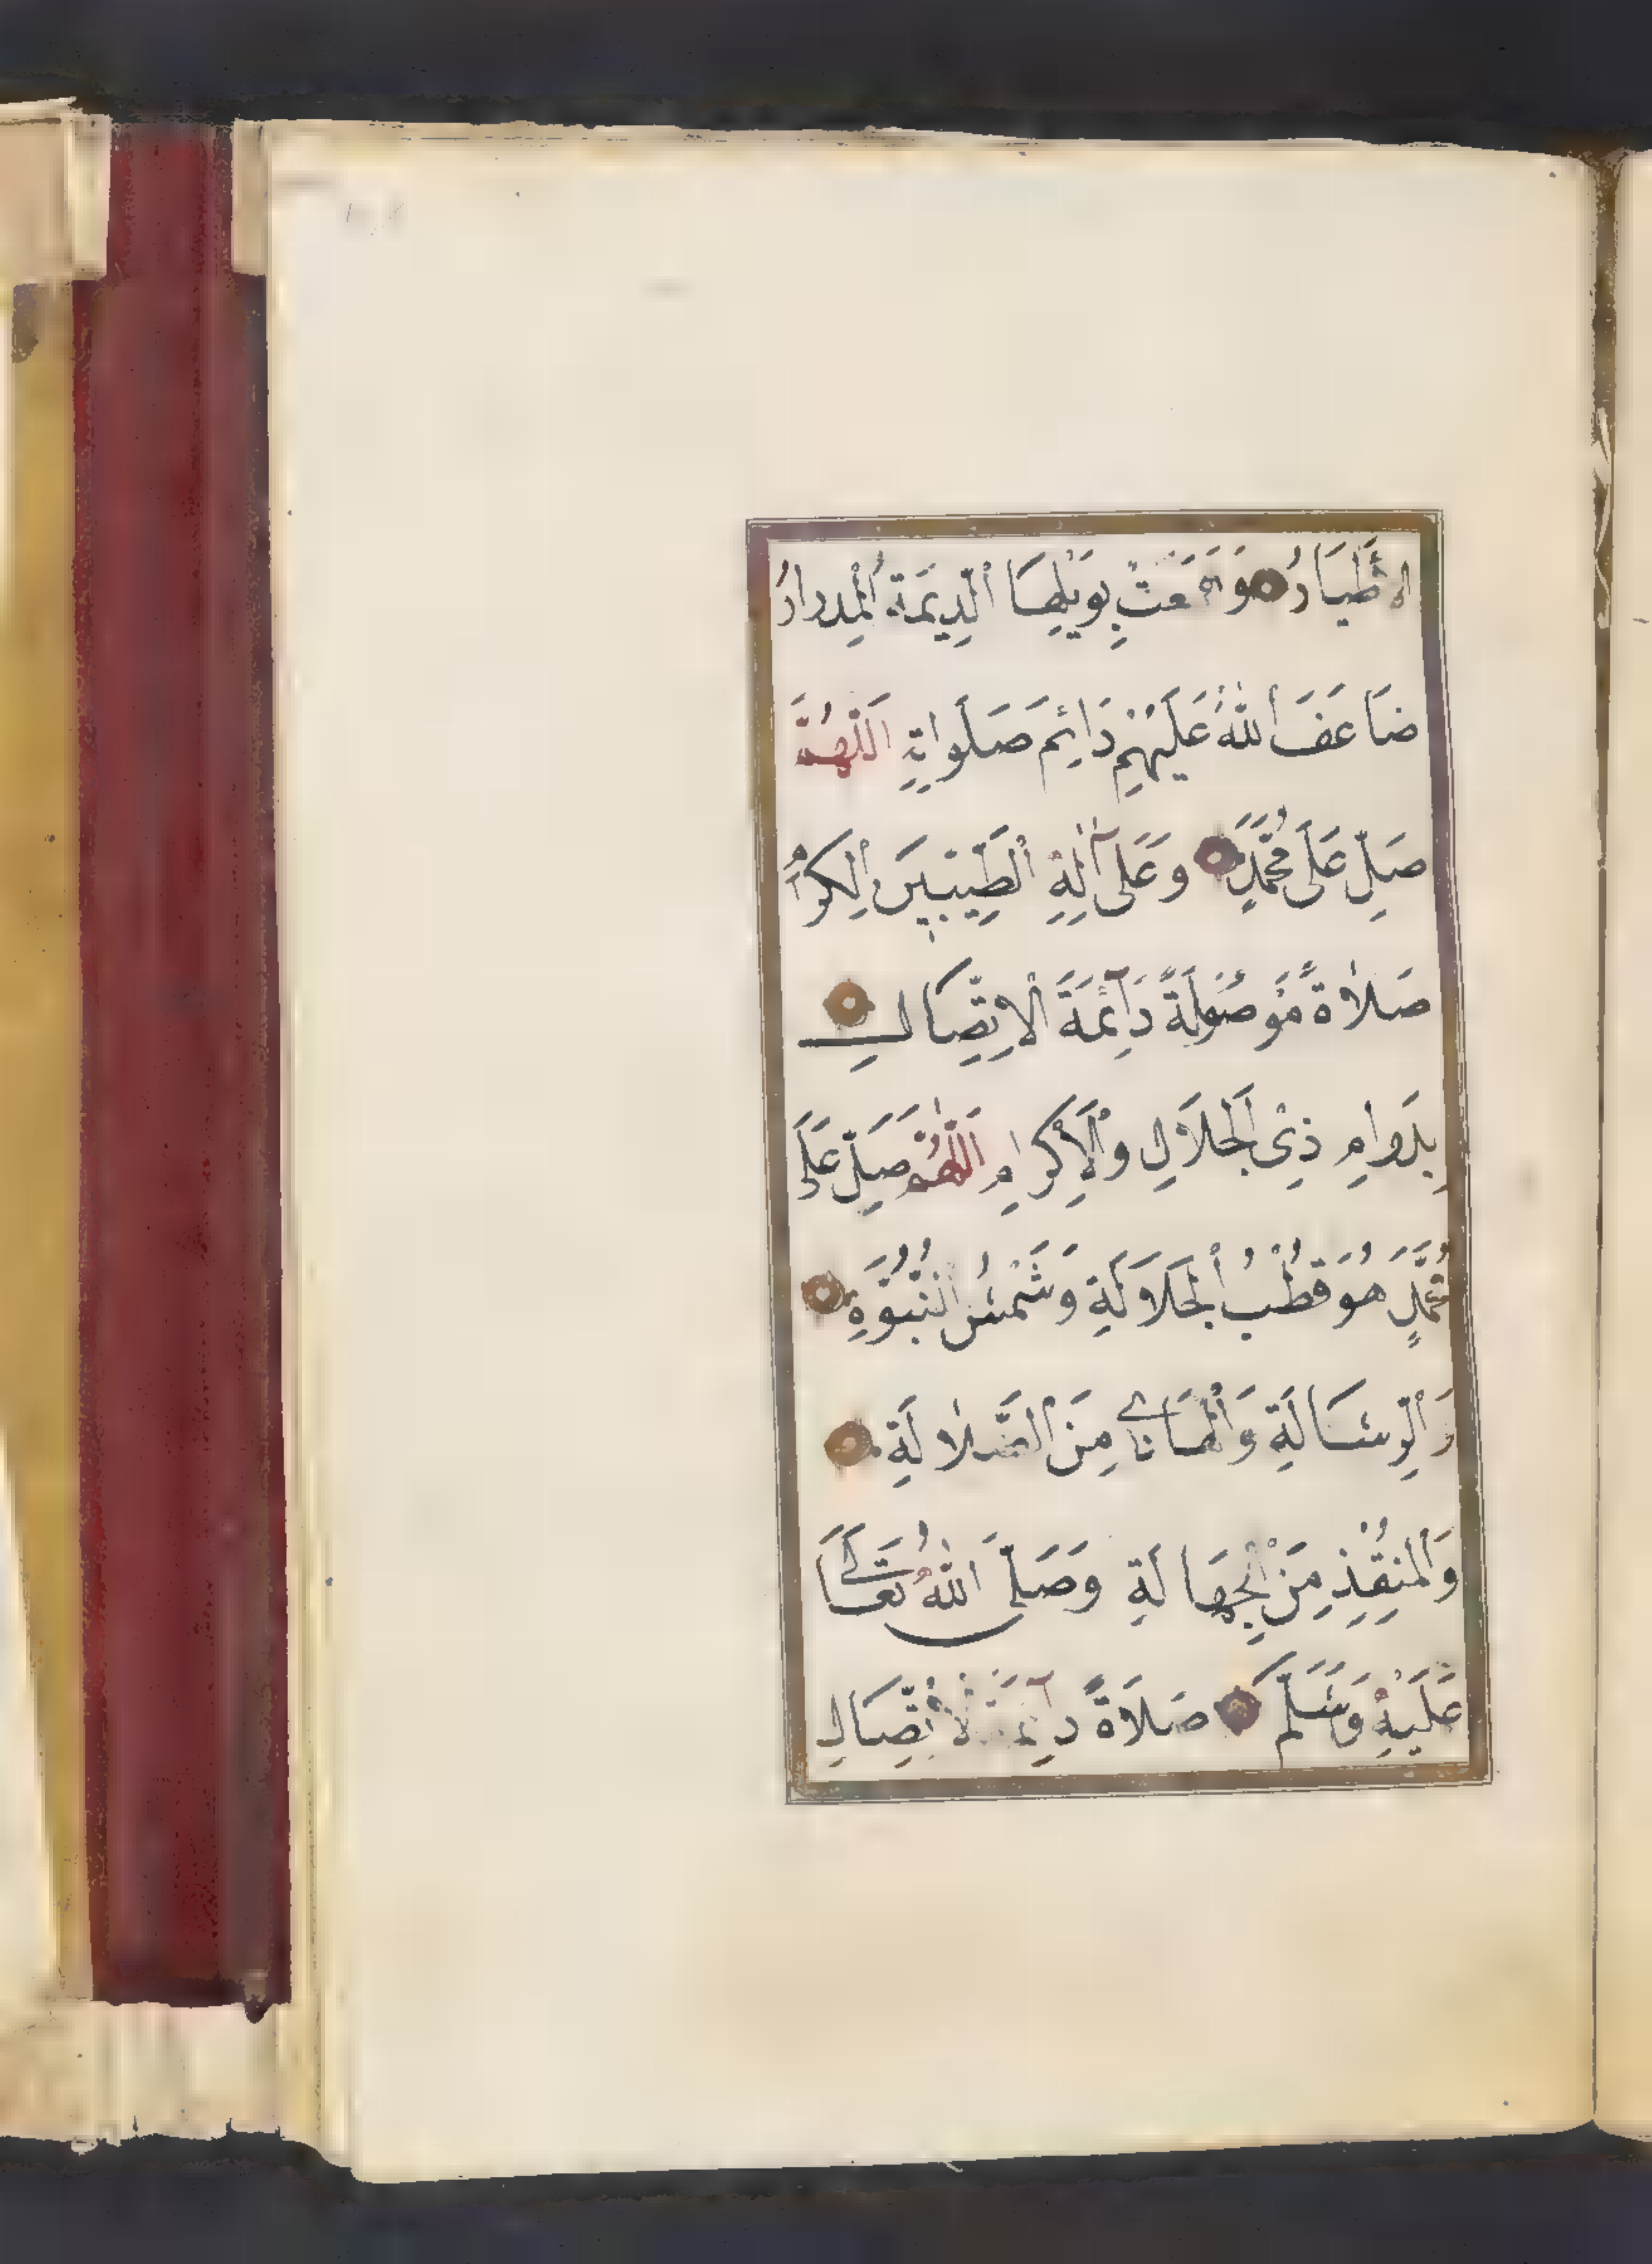 الأَطْيَارُ وَهَمَعَتْ بِوَبْلِهَا الدِّيمَةُ الْمِدْرَارُ
ضَاعَفَ اللّٰهُ عَلَيْهِمْ دَائِمَ صَلَوَاتِهِ اَللّٰهُمَّ
صَلِّ عَلَى مُحَمَّدٍ وَعَلَى آلِهِ الطَّيِّبِينَ الْكِرَامِ
صَلَاةً مَوْصُولَةً دَآئِمَةَ الْاِتِّصَالِ
بِدَوَامِ ذِي الْجَلَالِ وَالْإِكْرَامِ اَللّٰهُمَّ صَلِّ عَلَى
مُحَمَّدٍ هُوَ قُطْبُ الْجَلَالَةِ وَشَمْسُ النُّبُوَّةِ
وَالرِّسَالَةِ وَالْهَادِي مِنَ الضَّلَالَةِ
وَالْمُنْقِذِ مِنَ الْجَهَالَةِ وَصَلَّى اللّٰهُ تَعَالَى
عَلَيْهِ وَسَلَّمَ صَلَاةً دَآئِمَةَ الْاِتِّصَالِ